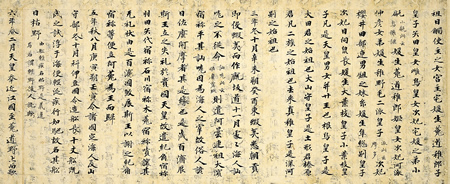 祖日觸使主之女宮主宅媛生菟道稚郎子
皇子矢田皇女雌鳥皇女次妃宅媛之弟小
甂媛生菟道稚郎姬皇女次妃河派
仲彦女弟媛生稚野毛二派皇子次妃
櫻井田部連男鉏之妹糸媛生隼總別皇子
次妃日向泉長媛生大葉枝皇子小葉枝皇
子凡是天皇男女并廿王也根鳥皇子是
大田君之始祖也大山守皇子是土形君榛原
君凡二族之始祖也去來真稚皇子是深河
別之始祖也
三年冬十月辛未朔癸酉東蝦夷悉朝貢
即役蝦夷而作厩坂道十一月處々海人訕
哤之不從命則遣阿曇連祖大濱
宿祢平其訕哤因為海人之宰故俗人諺
曰佐麼阿摩者其是緣也是歲百濟辰
斯王立之失礼於貴國天皇故遣紀角宿祢羽
田矢代宿祢石川宿祢木菟宿祢嘖讓其
无礼狀由是百濟國殺辰斯王以謝之紀角
宿祢等便立阿花為王而歸
五年秋八月庚寅朔壬寅令諸國定海人及山
守部冬十月科伊豆國令造船長十丈船既
成之試浮于海便輕泛疾行如馳故名其船
曰枯野由船輕疾名枯野是義違
焉若謂輕野後人訛歟
六年春二月天皇幸近江國至菟道野上而歌